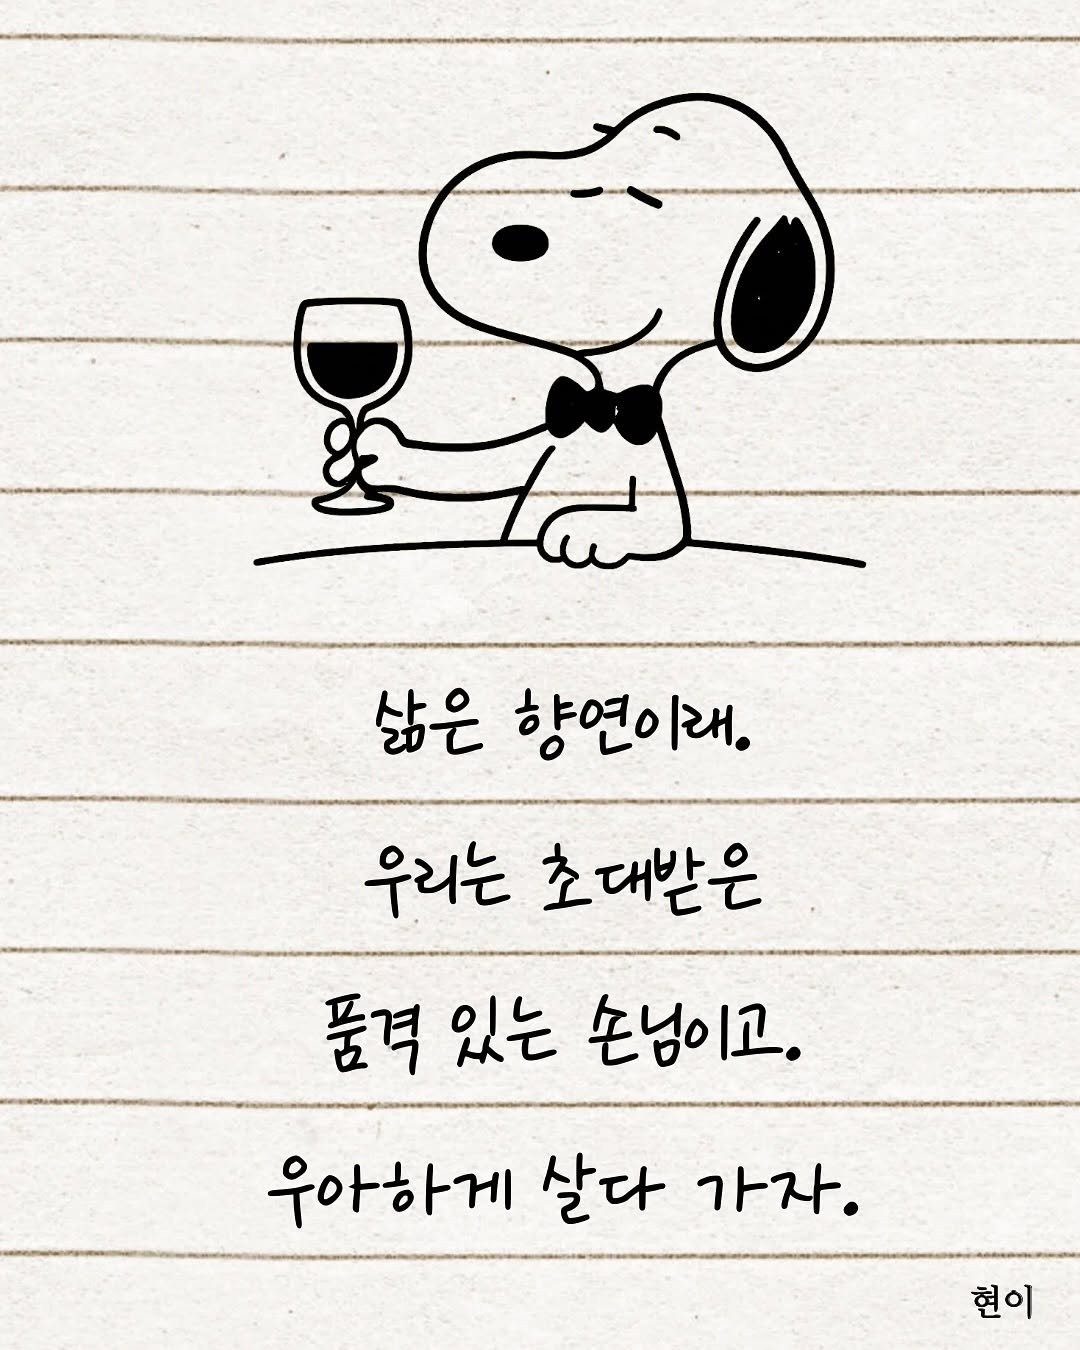 삶은 향연이래.
우리는 초대받은
품격 있는 손님이고.
우아하게 살다 가자.
현이